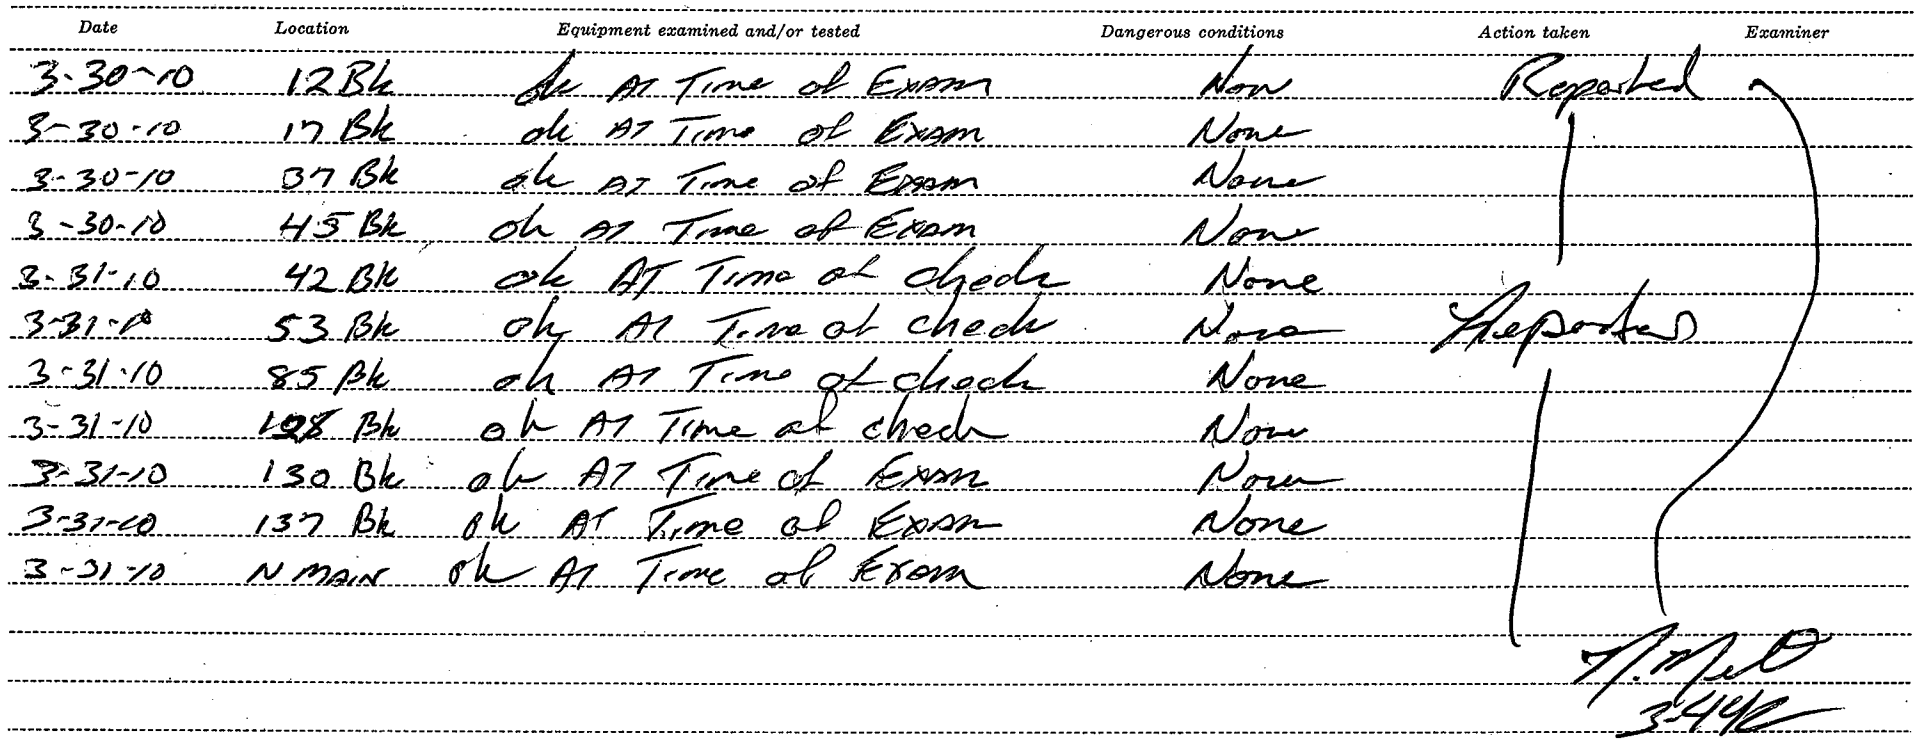 Date Location Equipment examined and/or tested Dangerous conditions Action taken Examiner
3-30-10 12 Bk ok AT Time of Exam Non Reported
3-30-10 17 Bk ok AT Time of Exam None
3-30-10 37 Bk ok AT Time of Exam None
3-30-10 45 Bk ok AT Time of Exam None
3-31-10 42 Bk ok AT Time of check None
3-31-10 53 Bk ok AT Time of check None Reported
3-31-10 85 Bk ok AT Time of check None
3-31-10 Bk ok AT Time of check None
3-31-10 130 Bk ok AT Time of Exam None
3-31-10 137 Bk ok AT Time of Exam None
3-31-10 N MAIN ok AT Time of Exam None